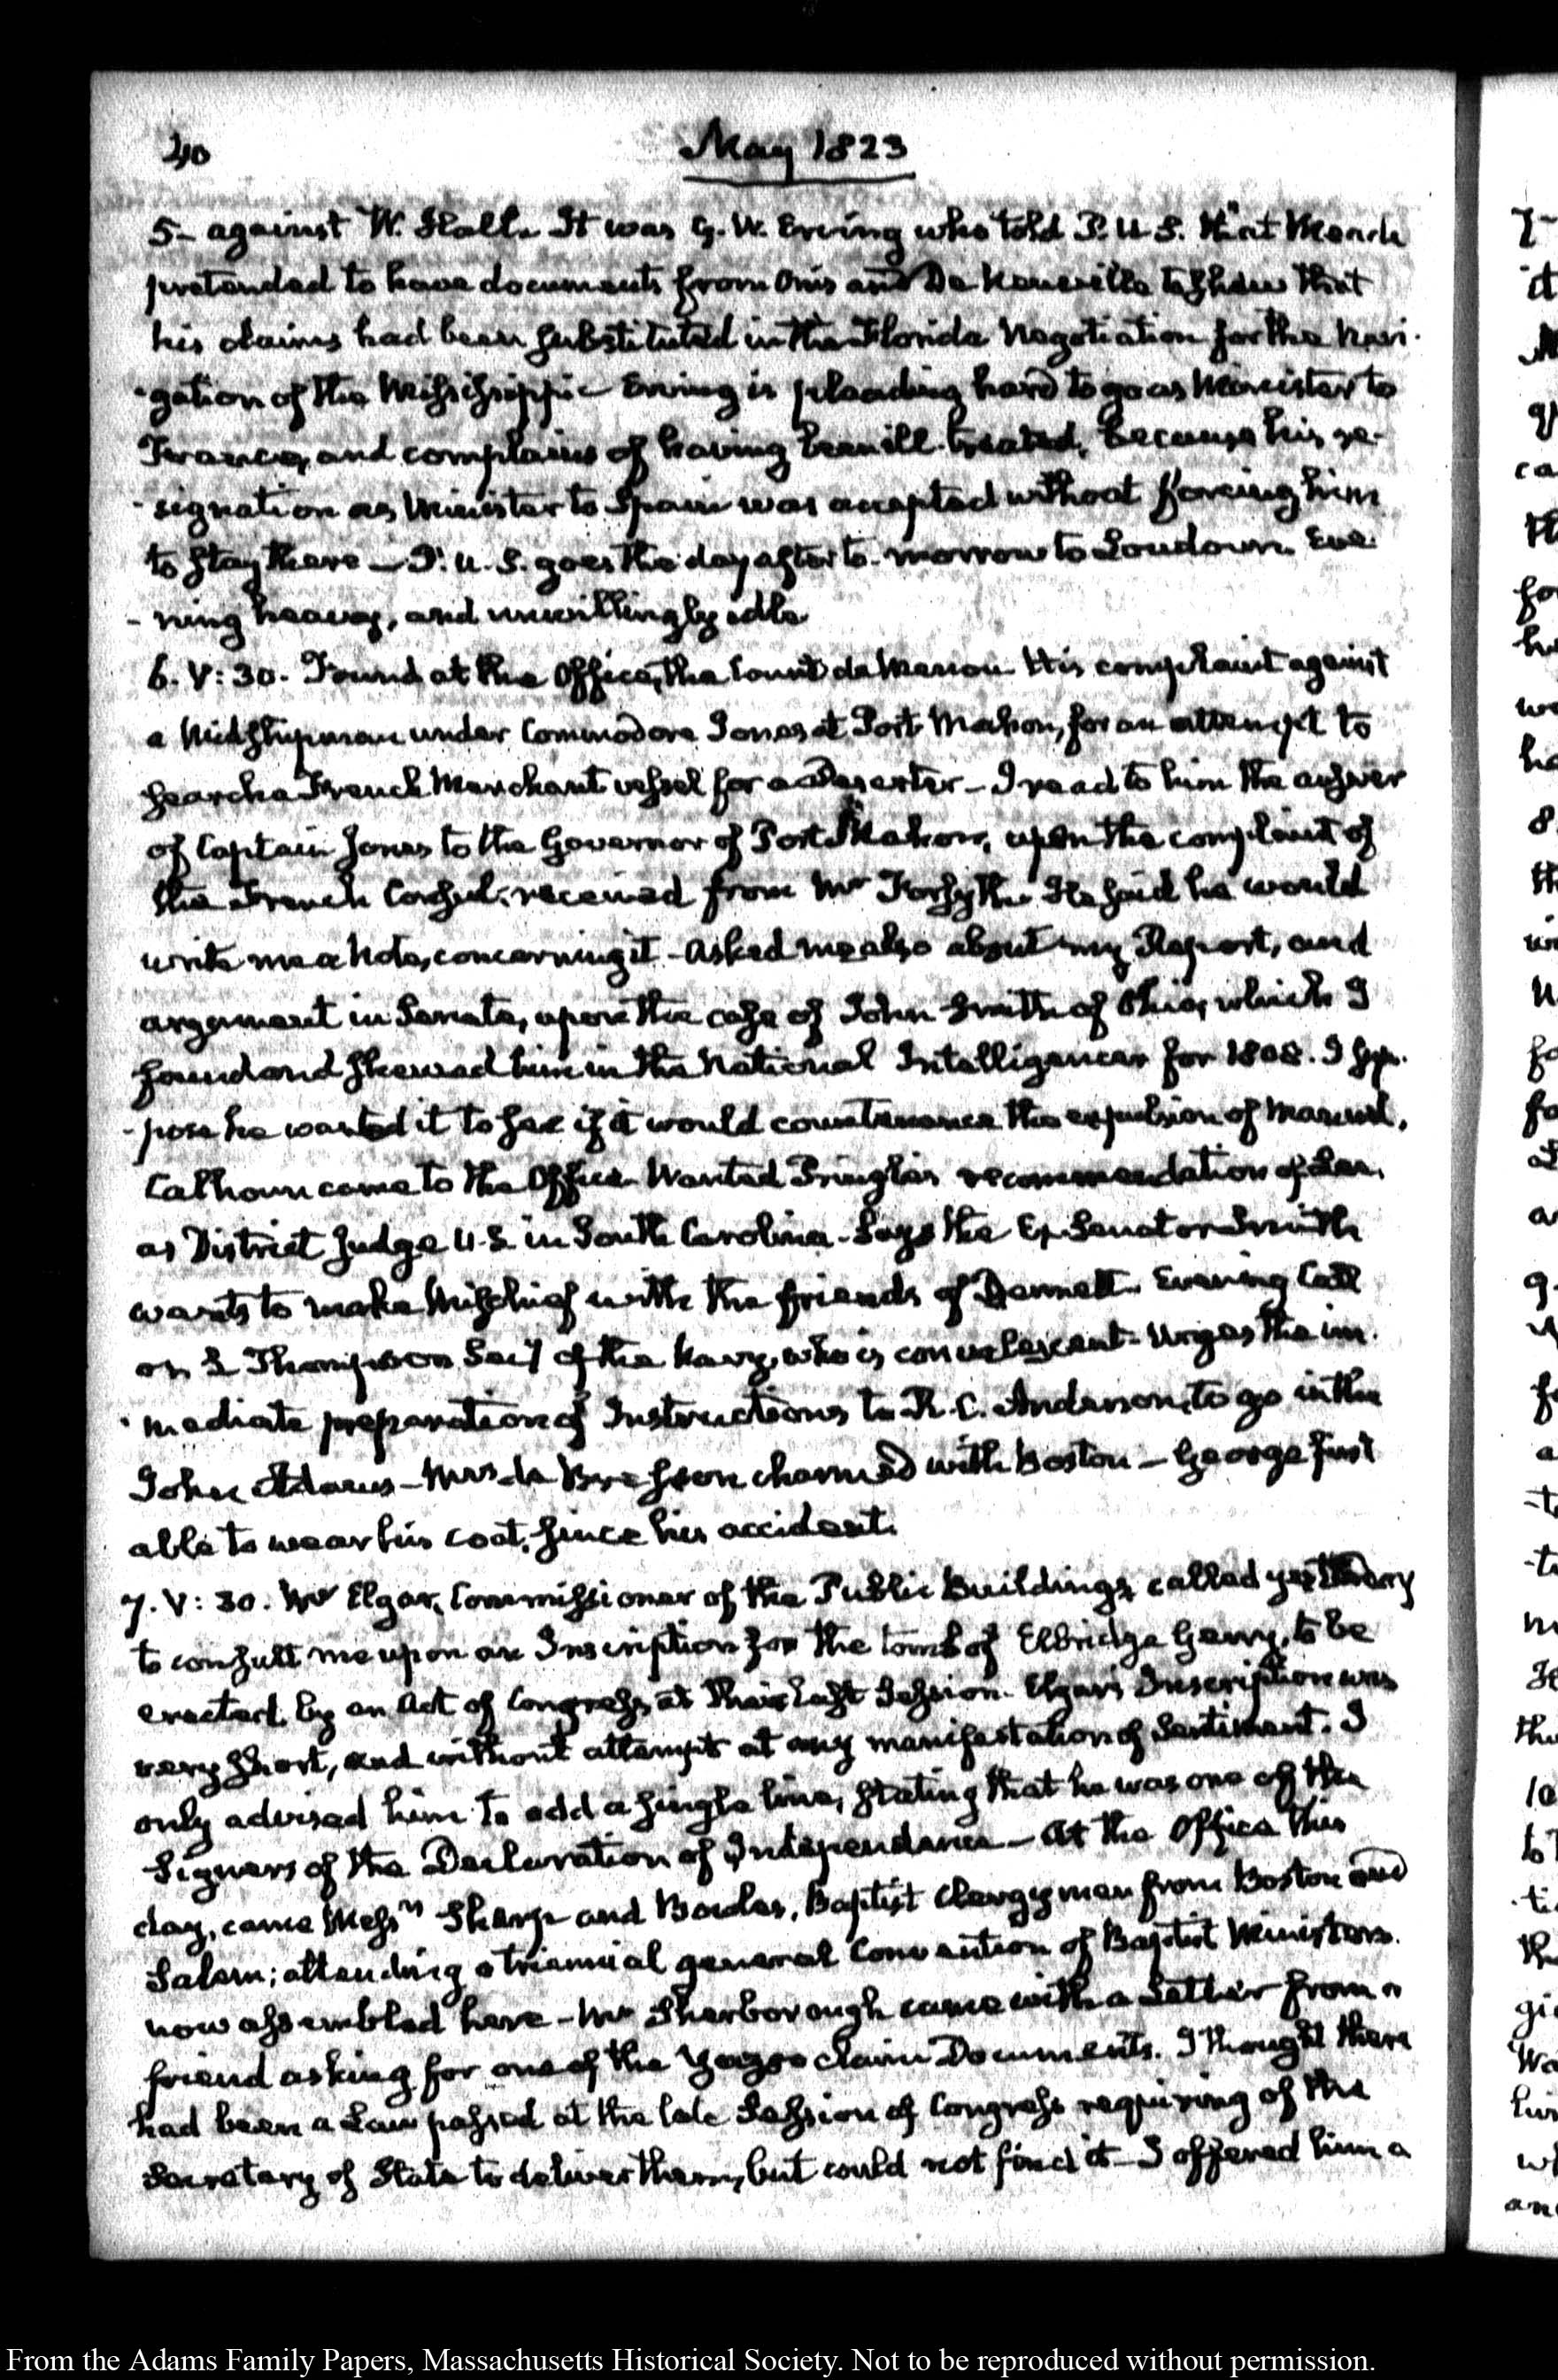 40
May 1823
5- against W. Hall. It was G. W. Erving who told P. U. S. that Meade
pretended to have documents from Onis and De Neuville to shew that
his claims had been substituted in the Florida Negotiation for the Navi-
-gation of the Mississippi - Erving is pleading hard to go as Minister to
France, and complains of having been ill treated, because his re-
-signation as Minister to Spain was accepted without forcing him
to stay there — P. U. S. goes the day after to-morrow to Loudoun. Eve-
-ning heavy, and unwillingly idle
6. V: 30. Found at the Office, the Count de Menou His complaint against
a Midshipman under Commodore Jones at Port Mahon, for an attempt to
search a French Merchant vessel for a Deserter - I read to him the answer
of Captain Jones to the Governor of Port Mahon, upon the complaint of
the French Consul; received from Mr Forsyth. He said he would
write me a Note, concerning it - Asked me also about my Report, and
argument in Senate, upon the case of John Smith of Ohio, which I
found and shewed him in the National Intelligencer for 1808. I sup-
-pose he wanted it to see if it would countenance the expulsion of Manuel.
Calhoun came to the Office. Wanted Pringle's recommendation of Lee,
as District Judge U. S. in South Carolina - Says the Ex Senator Smith
wants to make Mischief with the friends of Bennett. Evening Call
on S Thompson Secy of the Navy, who is convalescent - Urges the im-
-mediate preparation of Instructions to R. C. Anderson, to go in the
John Adams - Mrs de Bresson charmed with Boston — George first
able to wear his coat, since his accident.
7. V: 30. Mr Elgar, Commissioner of the Public Buildings, called yesterday
to consult me upon an Inscription for the tomb of Elbridge Gerry, to be
erected by an Act of Congress at their last Session. Elgar's Inscription was
very short, and without attempt at any manifestation of Sentiment. I
only advised him to add a single line, stating that he was one of the
Signers of the Declaration of Independence — At the Office this
day, came Messrs Sharp and Bowles, Baptist Clergymen from Boston and
Salem; attending a triennial general Convention of Baptist Ministers
now assembled here - Mr Sherborough came with a Letter from a
friend asking for one of the Yazoo claim Documents. I thought there
had been a Law passed at the late Session of Congress requiring of the
Secretary of State to deliver them, but could not find it - I offered him a
From the Adams Family Papers, Massachusetts Historical Society. Not to be reproduced without permission.